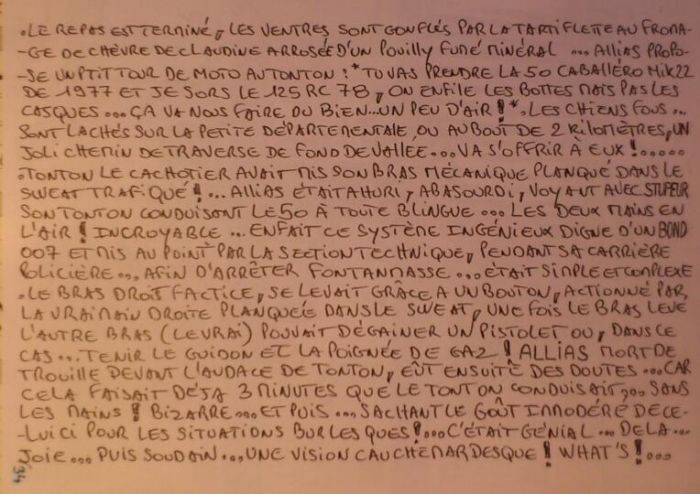 .LE REPAS EST TERMINÉ, LES VENTRES SONT GONFLÉS PAR LA TARTIFLETTE AU FROMA-
-GE DE CHÈVRE DE CLAUDINE ARROSÉE D'UN POUILLY FUMÉ MINÉRAL ... ALLIAS PROPO-
-SE UN PTIT TOUR DE MOTO AU TONTON : "TU VAS PRENDRE LA 50 CABALLÉRO MIK22
DE 1977 ET JE SORS LE 125 RC 78, ON ENFILE LES BOTTES MAIS PAS LES
CASQUES... ÇA VA NOUS FAIRE DU BIEN... UN PEU D'AIR !". LES CHIENS FOUS...
SONT LACHÉS SUR LA PETITE DÉPARTEMENTALE, OU AU BOUT DE 2 KILOMÈTRES, UN
JOLI CHEMIN DE TRAVERSE DE FOND DE VALLEE... VA S'OFFRIR À EUX !.....
.TONTON LE CACHOTIER AVAIT MIS SON BRAS MÉCANIQUE PLANQUÉ DANS LE
SWEAT TRAFIQUÉ !... ALLIAS ÉTAIT AHURI, ABASOURDI, VOYANT AVEC STUPEUR
SON TONTON CONDUISANT LE 50 À TOUTE BLINGUE ... LES DEUX MAINS EN
L'AIR ! INCROYABLE ... EN FAIT CE SYSTÈME INGÉNIEUX DIGNE D'UN BOND
007 ET MIS AU POINT PAR LA SECTION TECHNIQUE, PENDANT SA CARRIÈRE
POLICIÈRE... AFIN D'ARRÊTER FONTANMASSE ... ÉTAIT SIMPLE ET COMPLEXE
.LE BRAS DROIT FACTICE, SE LEVAIT GRÂCE A UN BOUTON, ACTIONNÉ PAR
LA VRAI MAIN DROITE PLANQUÉE DANS LE SWEAT, UNE FOIS LE BRAS LEVÉ
L'AUTRE BRAS (LE VRAI) POUVAIT DÉGAINER UN PISTOLET OU, DANS CE
CAS... TENIR LE GUIDON ET LA POIGNÉE DE GAZ ! ALLIAS MORT DE
TROUILLE DEVANT L'AUDACE DE TONTON, EÛT ENSUITE DES DOUTES ... CAR
CELA FAISAIT DÉJA 3 MINUTES QUE LE TONTON CONDUISAIT,.. SANS
LES MAINS ! BIZARRE... ET PUIS ... SACHANT LE GOÛT IMMODÉRÉ DE CE-
-LUI CI POUR LES SITUATIONS BURLESQUES !... C'ÉTAIT GÉNIAL ... DE LA ..
JOIE... PUIS SOUDAIN... UNE VISION CAUCHEMARDESQUE ! WHAT'S !...
34